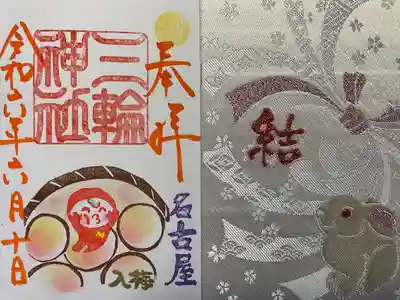 奉拝
三輪
神社
令和六年六月十日
名古屋
入梅
結